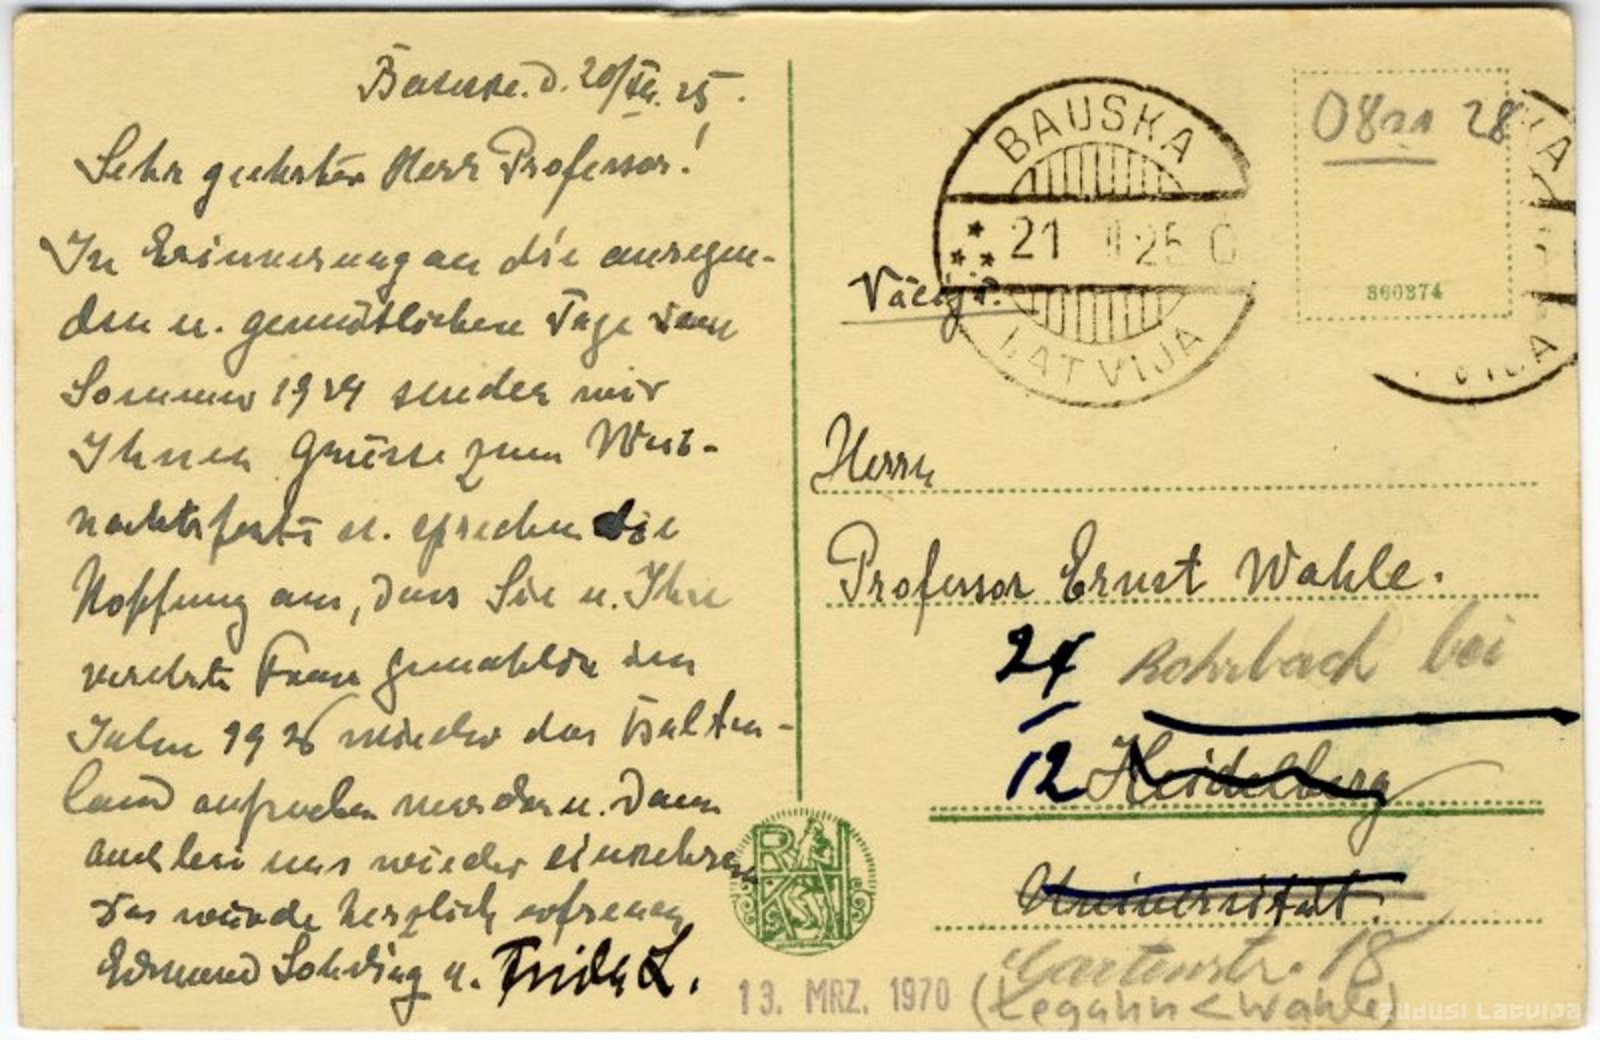 Bauske. d. 20/XII. 25.
Sehr geehrter Herr Professor!
In Erinnerung an die anregen-
den u. gemütlichen Tage vom
Sommer 1924 senden wir
Ihnen Grüsse zum Weih-
nachtsfeste u. sprechen die
Hoffnung aus, dass Sie u. Ihre
verehrte Frau Gemahlin im
Jahre 1926 wieder das Balten-
land aufsuchen werden u. dann
auch bei uns wieder einkehren
Das würde herzlich erfreuen
Edmund u. Frida L.
BAUSKA
21 II 25 0
LATVIJA
0821 28
360374
Vācijā.
Herrn
Professor Ernst Wahle.
24 Rohrbach bei
12 Heidelberg
Universität.
Gartenstr. 18
13. MRZ. 1970
(Legahn < Wahle)
ZUDUSI LATVIJA